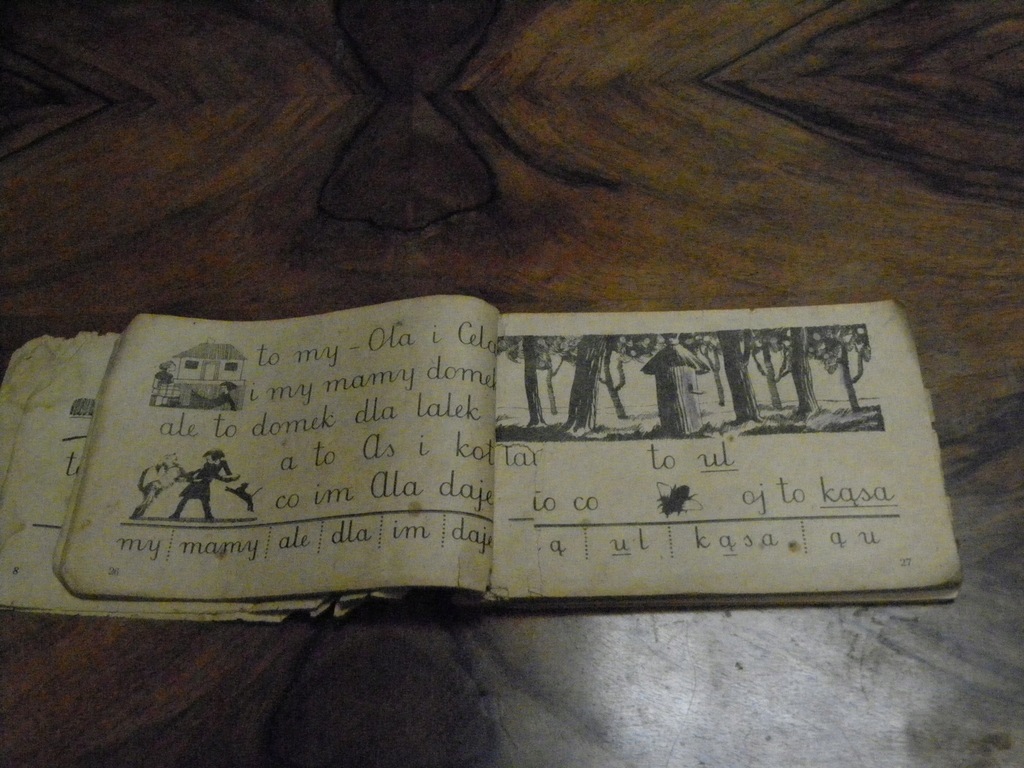 to my - Ola i Cela
i my mamy domek
ale to domek dla lalek
a to As i kot
co im Ala daje
my mamy ale dla im daje
26
to ul
co oj to kąsa
ą ul kąsa ą u
27
8